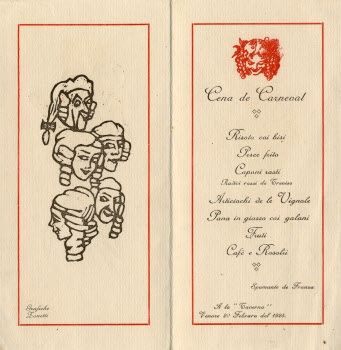 Grafiche
Zanetti
Cena de Carneval
Risoto coi bisi
Pesce frito
Caponi rosti
Radici rossi de Treviso
Articiochi de le Vignole
Pana in giozzo coi galani
Fruti
Cafè e Rosolii
Spumante de Franza
A la "Taverna"
Venere 20 Febraro del 1925.